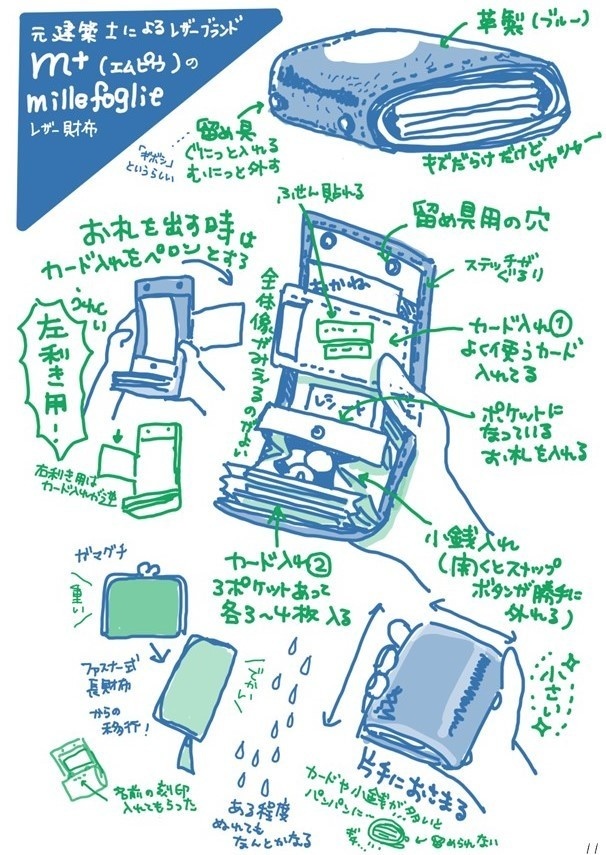 元建築士によるレザーブランド
m+(エムピウ)の
millefoglie
レザー財布
革製(ブルー)
留め具
ぐにっと入れる
むにっと外す
「ギボシ」
というらしい
キズだらけだけどツヤツヤ
お札を出す時は
カード入れをペロンとする
左利き用!
右利き用は
カード入れが逆
全体像がみえるのがよい
ふせん貼れる
留め具用の穴
ステッチが
ぐるり
おかね
カード入れ①
よく使うカード
入れてる
レシート
ポケットに
なっている
お札を入れる
小銭入れ
(開くとスナップ
ボタンが勝手に
外れる)
カード入れ②
3ポケットあって
各3〜4枚入る
ガマグチ
重い
ファスナー式
長財布
からの
移行!
でかい
名前の刻印
入れてもらった
ある程度
ぬれても
なんとかなる
小さい
片手におさまる
カードや小銭が多いと
パンパンに〜
留められない
11